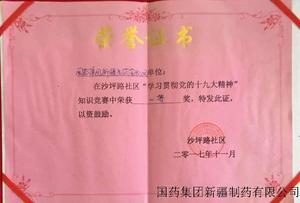 荣誉证书
单位：
在沙坪路社区“学习贯彻党的十九大精神”
知识竞赛中荣获 一等 奖，特发此证，
以资鼓励。
沙坪路社区
二零一七年十一月
国药集团新疆制药有限公司